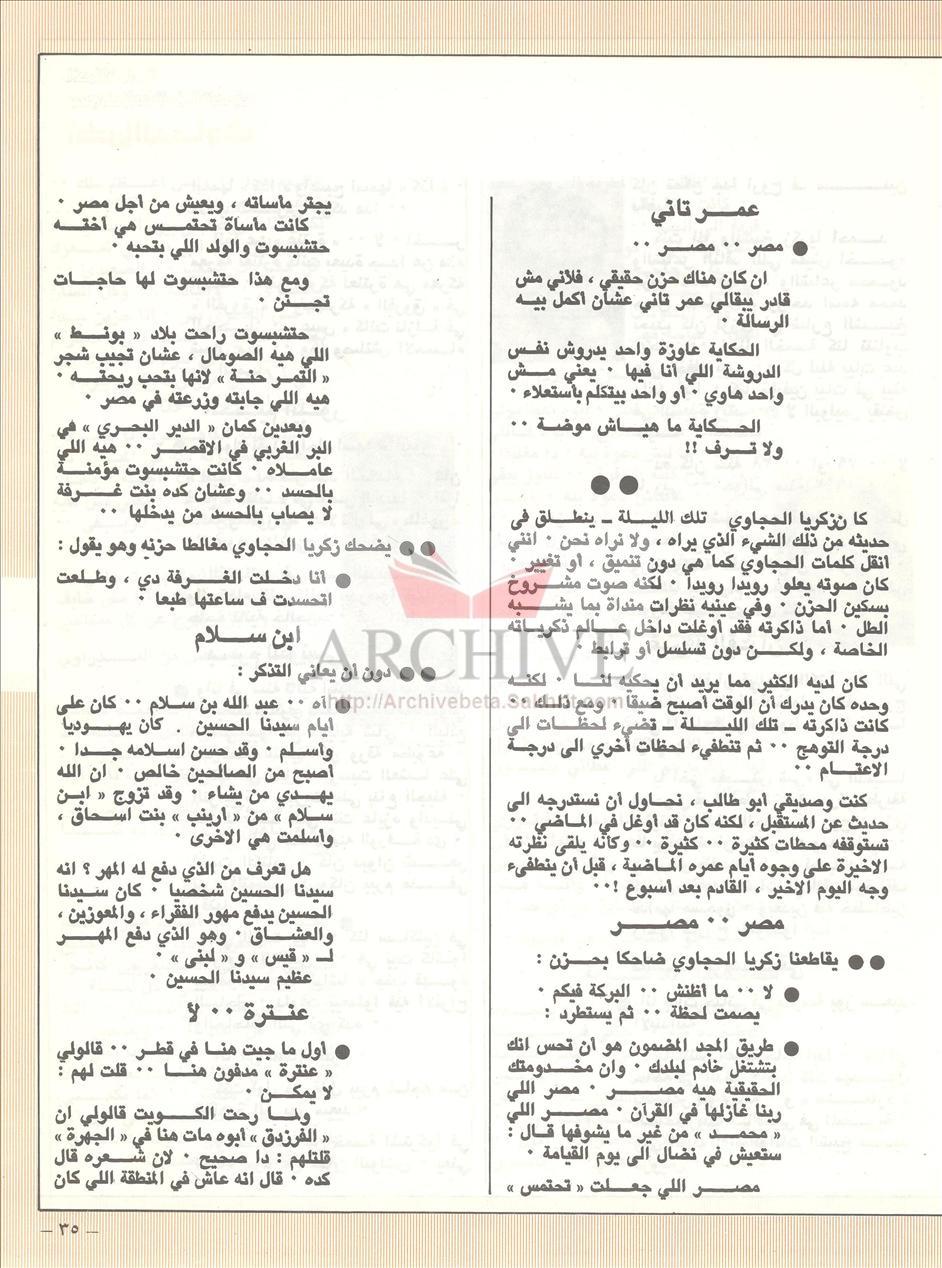 عمـــر تاني
● مصر ٠٠ مصـــر ٠٠
ان كان هناك حزن حقيقي ، فلأني مش
قادر يبقالي عمر تاني عشان اكمل بيــه
الرسالة ٠
الحكاية عاوزة واحد يدروش نفـس
الدروشة اللي أنا فيها ٠ يعني مــش
واحد هاوي ٠ أو واحد بيتكلم بأستعلاء ٠
الحــكاية ما هيــاش موضـة ٠٠
ولا تــرف !!
●●
كا نزكريا الحجاوي تلك الليـلة ــ ينطـلق فى
حديثه من ذلك الشيء الذي يراه ، ولا نراه نحن ٠ انني
أنقل كلمات الحجاوي كما هي دون تنميق ، أو تغيير ٠
كان صوته يعلو رويدا رويدا ٠ لكنه صوت مشــروخ
بسكين الحزن ٠ وفي عينيه نظرات منداة بما يشــبه
الطل ٠ أما ذاكرته فقد أوغلت داخل عــالم ذكريـاته
الخاصة ، ولكــن دون تسلسل أو ترابط ٠
كان لديه الكثير مما يريد أن يحكيه لنــا ٠ لكنـه
وحده كان يدرك أن الوقت أصبح ضيقا ٠ ومع ذلـك ٠٠
كانت ذاكرته ــ تلك الليــلة ــ تضيء لحظـات الى
درجة التوهج ٠٠ ثم تنطفيء لحظات أخري الى درجة
الاعتــام ٠٠
كنت وصديقي أبو طالب ، نحـاول أن نستدرجه الى
حديث عن المستقبل ، لكنه كان قد أوغل في الماضي ٠٠
تستوقفه محطات كثيرة ٠٠ كثيرة ٠٠ وكأنه يلقى نظرته
الاخيرة على وجوه أيام عمره المـاضية ، قبل أن ينطفىء
وجه اليوم الاخير ، القادم بعد أسبوع !٠٠
مصر ٠٠ مصــــر
●● يقاطعنا زكريا الحجاوي ضاحكا بحــزن :
● لا ٠٠ ما أظنش ٠٠ البركة فيكم ٠
يصمت لحظة ٠٠ ثم يستطرد :
● طريق المجد المضمون هو أن تحس انك
بتشتغل خادم لبلدك ٠ وان مخـدومتك
الحقيقية هيه مصـــر ٠ مصر اللي
ربنا غازلها في القرآن ٠ مصــر اللي
« محمـــد » من غير ما يشوفها قال :
ستعيش في نضال الى يوم القيامة ٠
مصــر اللي جعــلت « تحتمس »
يجتر مأساته ، ويعيش من أجل مصر ٠
كانت مأساة تحتمـس هي أختــه
حتشبسوت والولد اللي بتحبه ٠
ومع هذا حتشبسوت لها حاجـات
تجــنن ٠
حتشبسوت راحت بلاد « بونــط »
اللي هيه الصومال ، عشان تجيب شجر
« التمـر حنـة » لانها بتحب ريحتـه ٠
هيه اللي جابته وزرعته في مصر ٠
وبعدين كمان « الدير البحـري » في
البر الغربي في الاقصـر ٠٠ هيه اللي
عامــلاه ٠ كانت حتشبسوت مؤمنـة
بالحسد ٠٠ وعشـان كده بنت غــرفة
لا يصاب بالحسد من يدخلها ٠٠
●● يضحك زكريا الحجاوي مغالطا حزنه وهو يقول :
● أنا دخـلت الغــرفة دي ، وطلعت
اتحسدت ف ساعتها طبعا ٠
ابن ســلام
●● دون أن يعاني التذكر :
● أه ٠٠ عبد الله بن سـلام ٠٠ كان على
أيام سيدنا الحسين . كان يهـوديا
وأسلم ٠ وقد حسن اسلامه جــدا ٠
أصبح من الصالحين خالص ٠ ان الله
يهــدي من يشاء ٠ وقد تزوج « ابـن
ســلام » من « أرينب » بنت اسحـاق ،
وأسلمت هي الاخرى ٠
هل تعرف من الذي دفع له المهر ؟ انه
سيدنا الحسين شخصيا ٠ كان سـيدنا
الحسين يدفع مهور الفقراء ، والمعوزين ،
والعشــاق ٠ وهو الذي دفع المهــر
لـ « قيس » و « لبنى » ٠
عظيم سيدنا الحسين ٠
عنــترة ٠٠ لأ
● أول ما جيت هنـا في قطر ٠٠ قالولي
« عنترة » مدفون هنــا ٠٠ قلت لهم :
لا يمكــن ٠
ولمــا رحت الكــويت قالولي ان
« الفرزدق » أبوه مات هنا في « الجهرة »
قلتلهم : دا صحيح ٠ لان شــعره قال
كده ٠ قال انه عاش في المنطقة اللي كان
ــ ٣٥ ــ
ARCHIVE
http://Archivebeta.Sakhrit.com